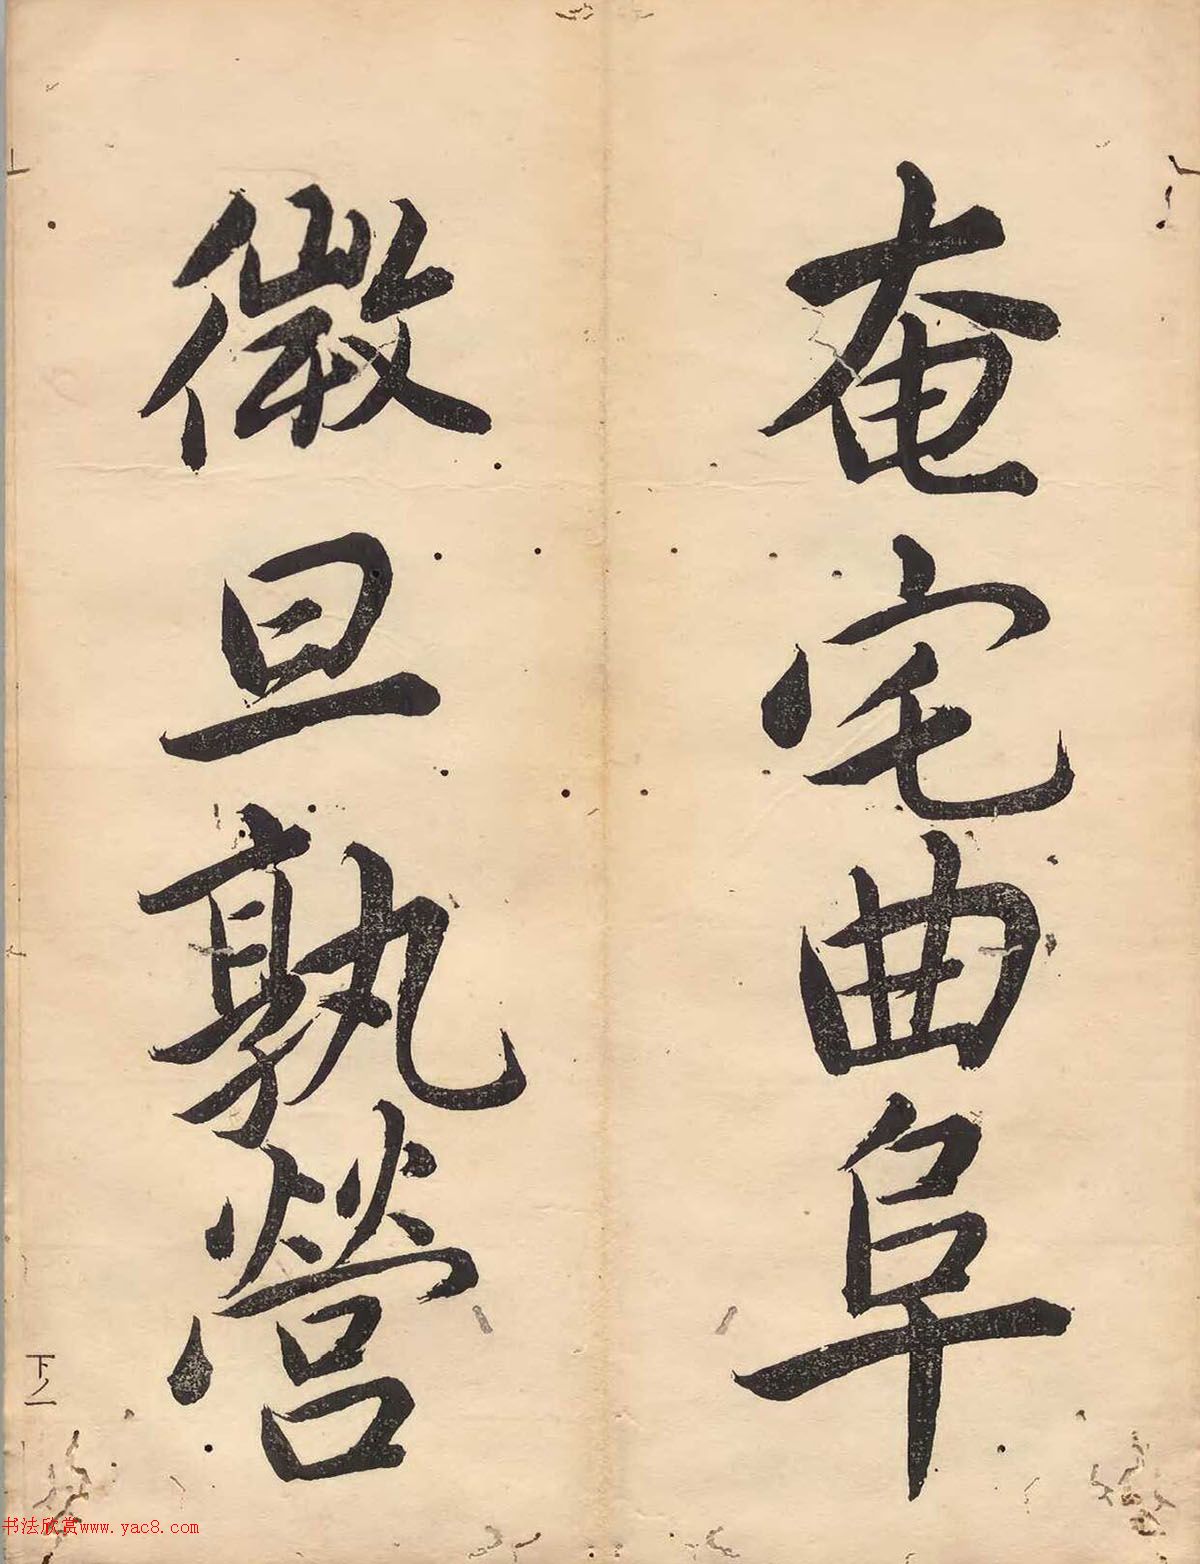 奄宅曲阜
微旦孰營
下ノ一
书法欣赏www.yac8.com